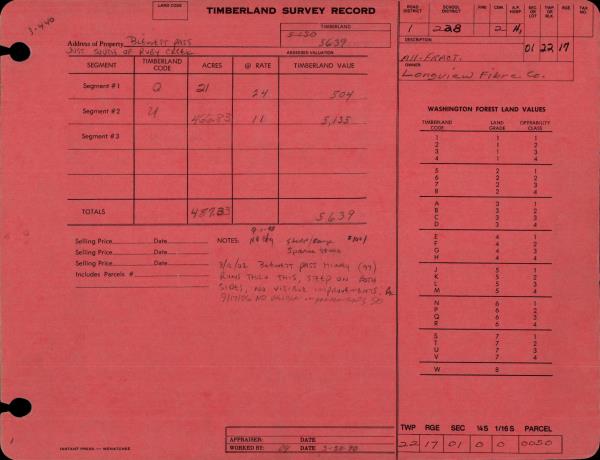 3-4-40
LAND CODE
TIMBERLAND SURVEY RECORD
TIMBERLAND
5639
Address of Property Blewett Pass
Just South of Ruby Creek
ASSESSED VALUATION
SEGMENT TIMBERLAND CODE ACRES @ RATE TIMBERLAND VALUE
Segment #1 Q 21 24 504
Segment #2 U 466.83 11 5,135
Segment #3
TOTALS 487.83 5639
Selling Price Date
Selling Price Date
Selling Price Date
Includes Parcels #
NOTES:
3/12/02 Blewett Pass Hiway (97)
Runs thru this, steep on both
sides, no visible improvements.
9/17/06 No visible improvements
INSTANT PRESS — WENATCHEE
APPRAISER: DATE
WORKED BY: DATE 3-20-90
ROAD DISTRICT SCHOOL DISTRICT FIRE CEM. HOSP SEC OR LOT TWP OR BLK RGE TAX NO.
1 228 2 H1 01 22 17
DESCRIPTION
All-Fract.
OWNER
Longview Fibre Co.
WASHINGTON FOREST LAND VALUES
TIMBERLAND CODE LAND GRADE OPERABILITY CLASS
1 1 1
2 1 2
3 1 3
4 1 4
5 2 1
6 2 2
7 2 3
8 2 4
A 3 1
B 3 2
C 3 3
D 3 4
E 4 1
F 4 2
G 4 3
H 4 4
J 5 1
K 5 2
L 5 3
M 5 4
N 6 1
P 6 2
Q 6 3
R 6 4
S 7 1
T 7 2
U 7 3
V 7 4
W 8
TWP RGE SEC ¼S 1/16S PARCEL
22 17 01 0 0 0050